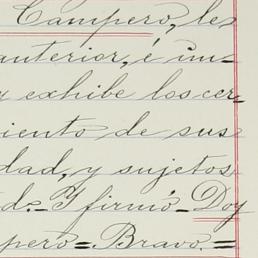 Campero, les
anterior, é im-
y exhibe los cer-
iento de sus
dad, y sujetos
de.- Y firmó.- Doy
pero = Bravo. =